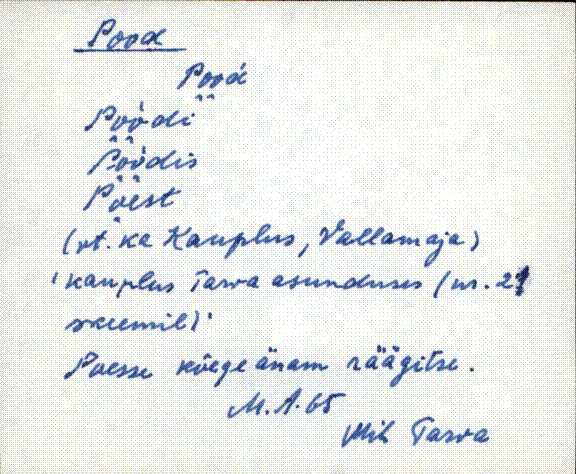 Pood
Pood́
Poodi
Poodis
Poest
(vt. ka Kauplus, Vallamaja)
'kauplus Tarva asunduses (nr. 21
skeemil)'
Poesse kõege änam räägitse.
M. A. 65
Mih Tarva